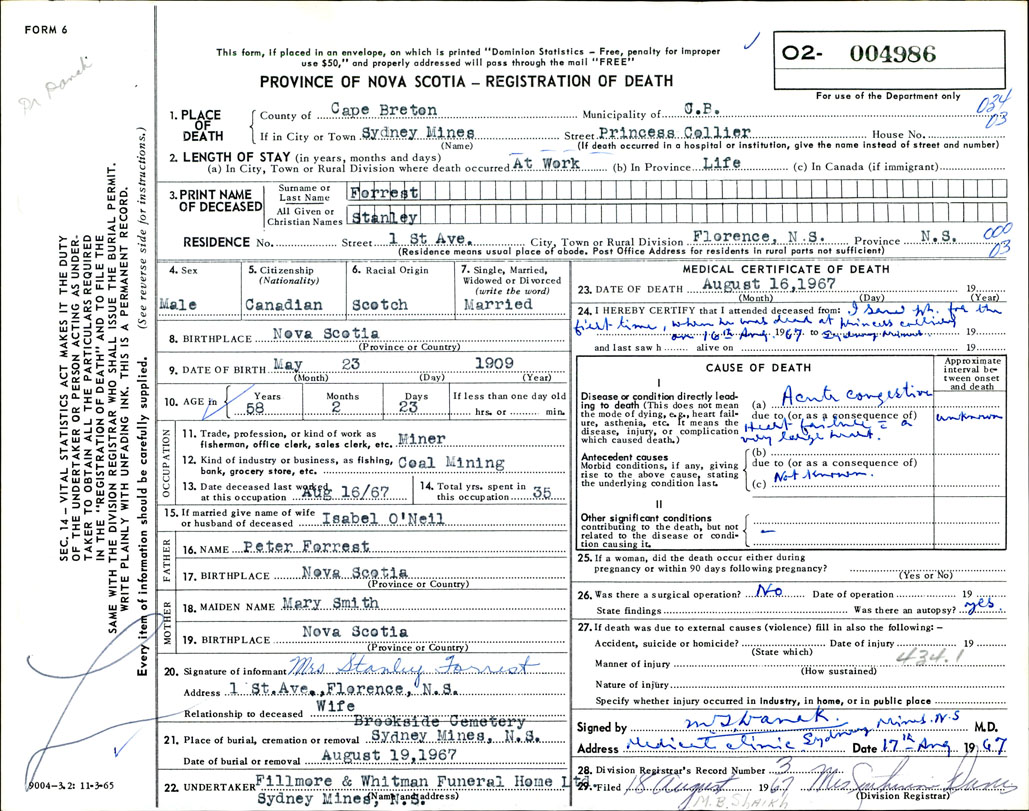 FORM 6
This form, if placed in an envelope, on which is printed "Dominion Statistics – Free, penalty for improper
use $50," and properly addressed will pass through the mail "FREE"
O2- 004986
PROVINCE OF NOVA SCOTIA – REGISTRATION OF DEATH
For use of the Department only
034
03
1. PLACE OF DEATH
County of Cape Breton Municipality of C.B.
If in City or Town Sydney Mines Street Princess Collier House No.
(Name) (If death occurred in a hospital or institution, give the name instead of street and number)
2. LENGTH OF STAY (in years, months and days)
(a) In City, Town or Rural Division where death occurred At Work (b) In Province Life (c) In Canada (if immigrant)
3. PRINT NAME OF DECEASED
Surname or Last Name Forrest
All Given or Christian Names Stanley
RESIDENCE No. Street 1 St Ave. City, Town or Rural Division Florence, N.S. Province N.S.
000
03
(Residence means usual place of abode. Post Office Address for residents in rural parts not sufficient)
4. Sex
Male
5. Citizenship
(Nationality)
Canadian
6. Racial Origin
Scotch
7. Single, Married,
Widowed or Divorced
(write the word)
Married
8. BIRTHPLACE Nova Scotia
(Province or Country)
9. DATE OF BIRTH May 23 1909
(Month) (Day) (Year)
10. AGE in Years Months Days If less than one day old
58 2 23 hrs. or min.
OCCUPATION
11. Trade, profession, or kind of work as
fisherman, office clerk, sales clerk, etc. Miner
12. Kind of industry or business, as fishing,
bank, grocery store, etc. Coal Mining
13. Date deceased last worked
at this occupation Aug 16/67
14. Total yrs. spent in
this occupation 35
15. If married give name of wife
or husband of deceased Isabel O'Neil
FATHER
16. NAME Peter Forrest
17. BIRTHPLACE Nova Scotia
(Province or Country)
MOTHER
18. MAIDEN NAME Mary Smith
19. BIRTHPLACE Nova Scotia
(Province or Country)
20. Signature of informant Mrs Stanley Forrest
Address 1 St.Ave.,Florence, N.S.
Relationship to deceased Wife
Brookside Cemetery
21. Place of burial, cremation or removal Sydney Mines, N.S.
Date of burial or removal August 19,1967
22. UNDERTAKER Fillmore & Whitman Funeral Home Ltd
(Name and address)
Sydney Mines, N.S.
MEDICAL CERTIFICATE OF DEATH
23. DATE OF DEATH August 16,1967 19
(Month) (Day) (Year)
24. I HEREBY CERTIFY that I attended deceased from: I saw pt. for the
first time, when he was dead at princess colliery
on 16th Aug. 1967 to Sydney Mines 19
and last saw h alive on 19
CAUSE OF DEATH
Approximate
interval be-
tween onset
and death
I
Disease or condition directly lead-
ing to death (This does not
mean the mode of dying, e.g., heart fail-
ure, asthenia, etc. It means the
disease, injury, or complication
which caused death.)
(a) Acute congestive
due to (or as a consequence of) unknown
Heart failure c̄ a
very large heart.
Antecedent causes
Morbid conditions, if any, giving
rise to the above cause, stating
the underlying condition last.
(b)
due to (or as a consequence of)
(c) Not known.
II
Other significant conditions
contributing to the death, but not
related to the disease or condi-
tion causing it.
–
25. If a woman, did the death occur either during
pregnancy or within 90 days following pregnancy?
(Yes or No)
26. Was there a surgical operation? No Date of operation 19
State findings Was there an autopsy? yes
27. If death was due to external causes (violence) fill in also the following: –
Accident, suicide or homicide? Date of injury 19
(State which)
434.1
Manner of injury
(How sustained)
Nature of injury
Specify whether injury occurred in Industry, in home, or in public place
Signed by M.D.
Address Medical Clinic Sydney Mines N.S Date 17th Aug 1967
28. Division Registrar's Record Number 3
29. Filed 18 August 1967
(Division Registrar)
M.B. SHAIKH
SEC. 14 – VITAL STATISTICS ACT MAKES IT THE DUTY
OF THE UNDERTAKER OR PERSON ACTING AS UNDER-
TAKER TO OBTAIN ALL THE PARTICULARS REQUIRED
IN THE "REGISTRATION OF DEATH" AND TO FILE THE
SAME WITH THE DIVISION REGISTRAR WHO SHALL ISSUE THE BURIAL PERMIT.
WRITE PLAINLY WITH UNFADING INK. THIS IS A PERMANENT RECORD.
Every item of information should be carefully supplied. (See reverse side for instructions.)
9004–3.2: 11-3-65